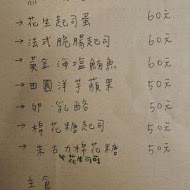 → 花生起司蛋 60元
→ 法式脆腸起司 60元
→ 黃金海塩鮪魚 60元
→ 田園洋芋蘋果 50元
→ 卵乳酪 50元
→ 棉花糖起司 50元
→ 朱古力棉花糖 50元
花生可可
主食